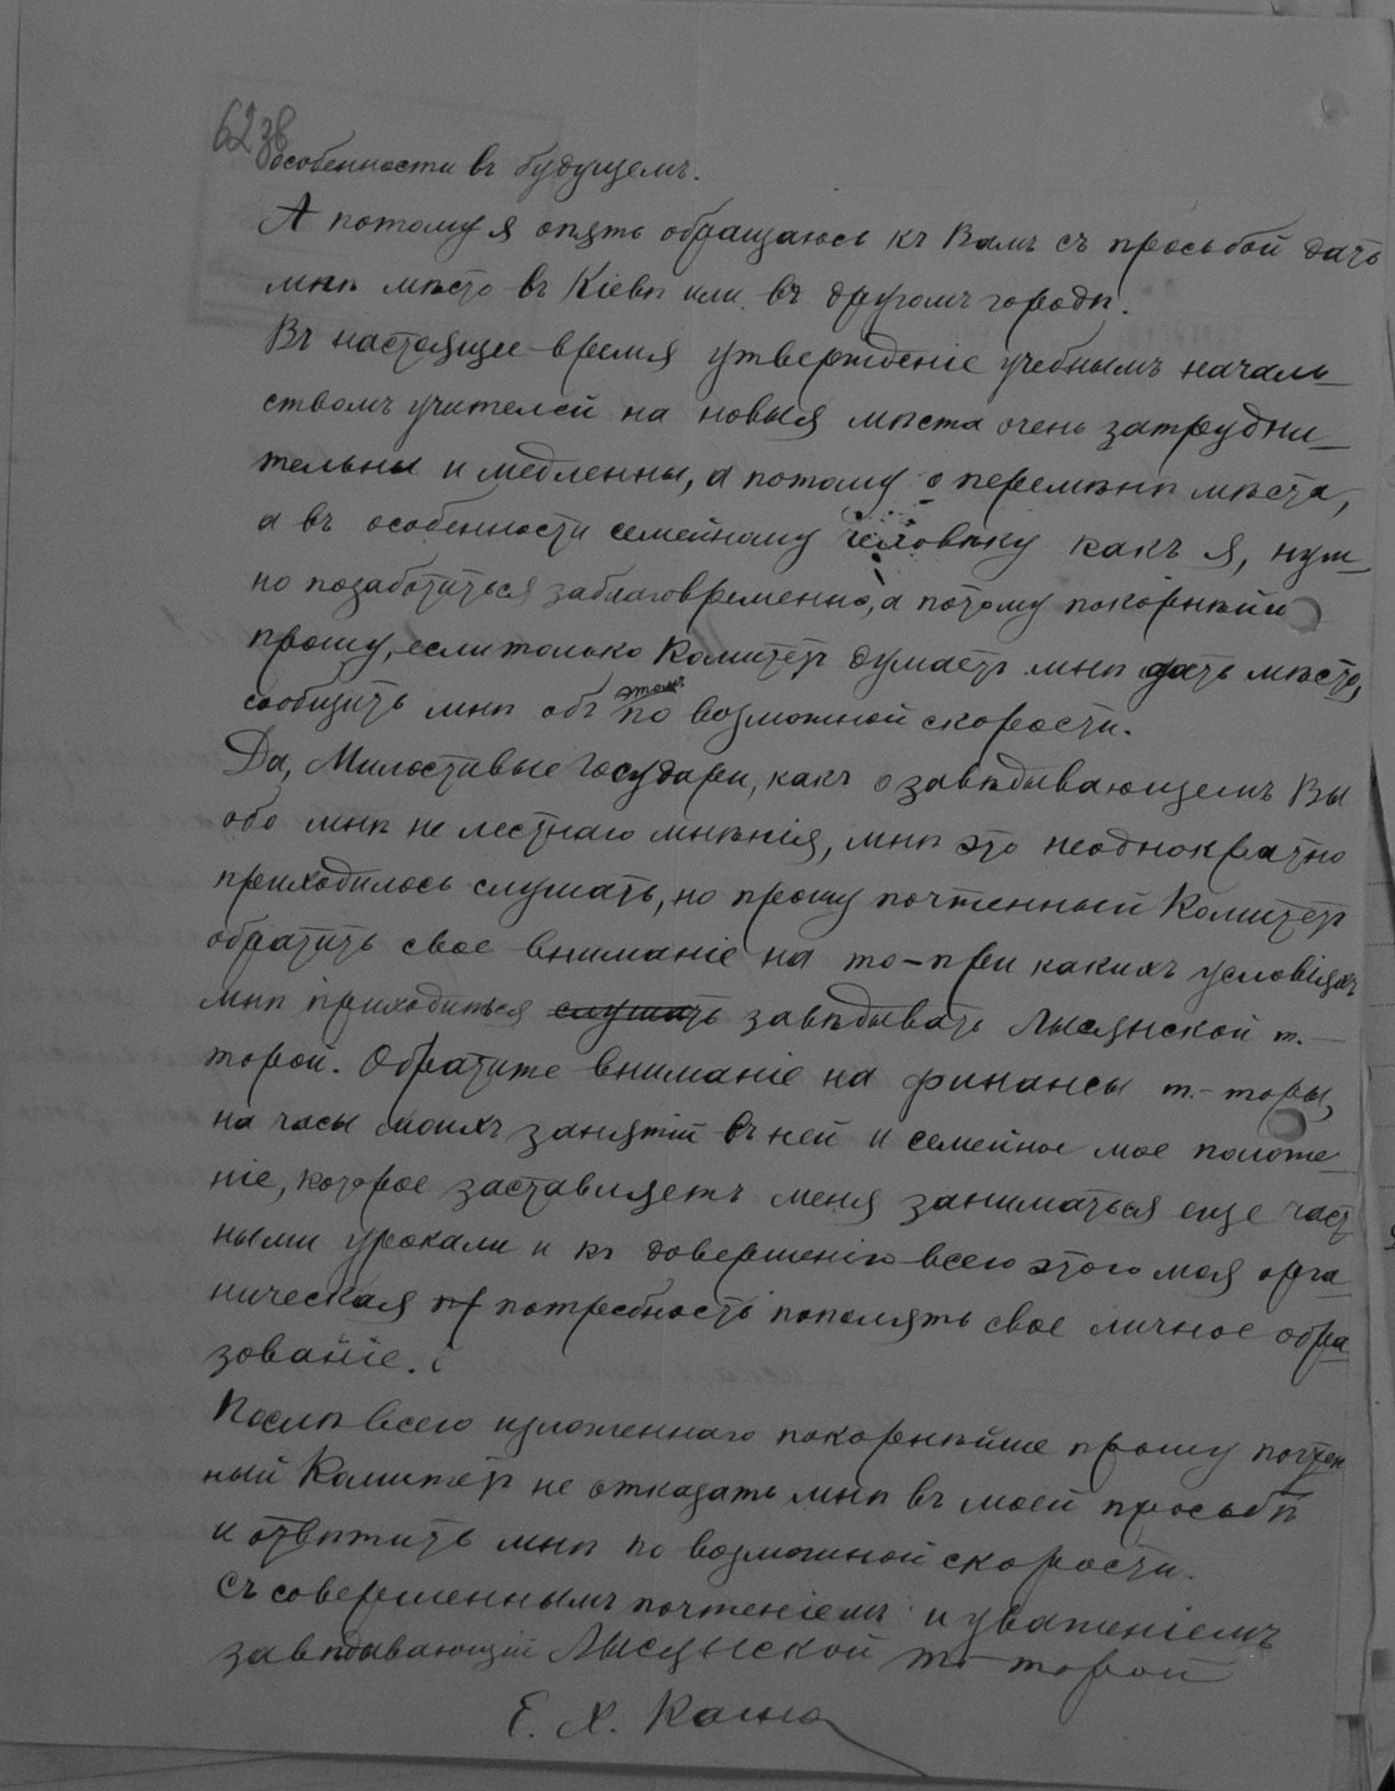 62 зв
особенности въ будущемъ.
А потому я опять обращаюсь къ Вамъ съ просьбой дать
мнѣ мѣсто въ Кіевѣ или въ другомъ городѣ.
Въ настоящее время утвержденіе учебнымъ началь-
ствомъ учителей на новыя мѣста очень затрудни-
тельны и медленны, а потому о перемѣнѣ мѣста,
а въ особенности семейному человѣку какъ я, нуж-
но позаботиться заблаговременно, а потому покорнѣйи
прошу, если только Комитетъ думаетъ мнѣ дать мѣсто,
сообщить мнѣ объ этомъ по возможной скорости.
Да, Милостивые Государи, какъ о завѣдывающемъ Вы
обо мнѣ не лестнаго мнѣнія, мнѣ это неоднократно
приходилось слушать, но прошу почтенный Комитетъ
обратить свое вниманіе на то-при какихъ условіяхъ
мнѣ приходиться слушать завѣдывать Лысянской т.-
торой. Обратите вниманіе на финансы т.-торы,
на часы моихъ занятій въ ней и семейное мое положе-
ніе, которое заставляетъ меня заниматься еще част
ными уроками и къ довершенію всего этого моя орга-
ническая пf потребность пополнять свое личное обра-
зованіе.
Послѣ всего изложеннаго покорнѣйше прошу почтен
ный Комитетъ не отказать мнѣ въ моей просьбѣ
и отвѣтить мнѣ по возможной скорости.
Съ совершеннымъ почтеніемъ и уваженіемъ
завѣдывающій Лысянской т.-торой
Е. Х.